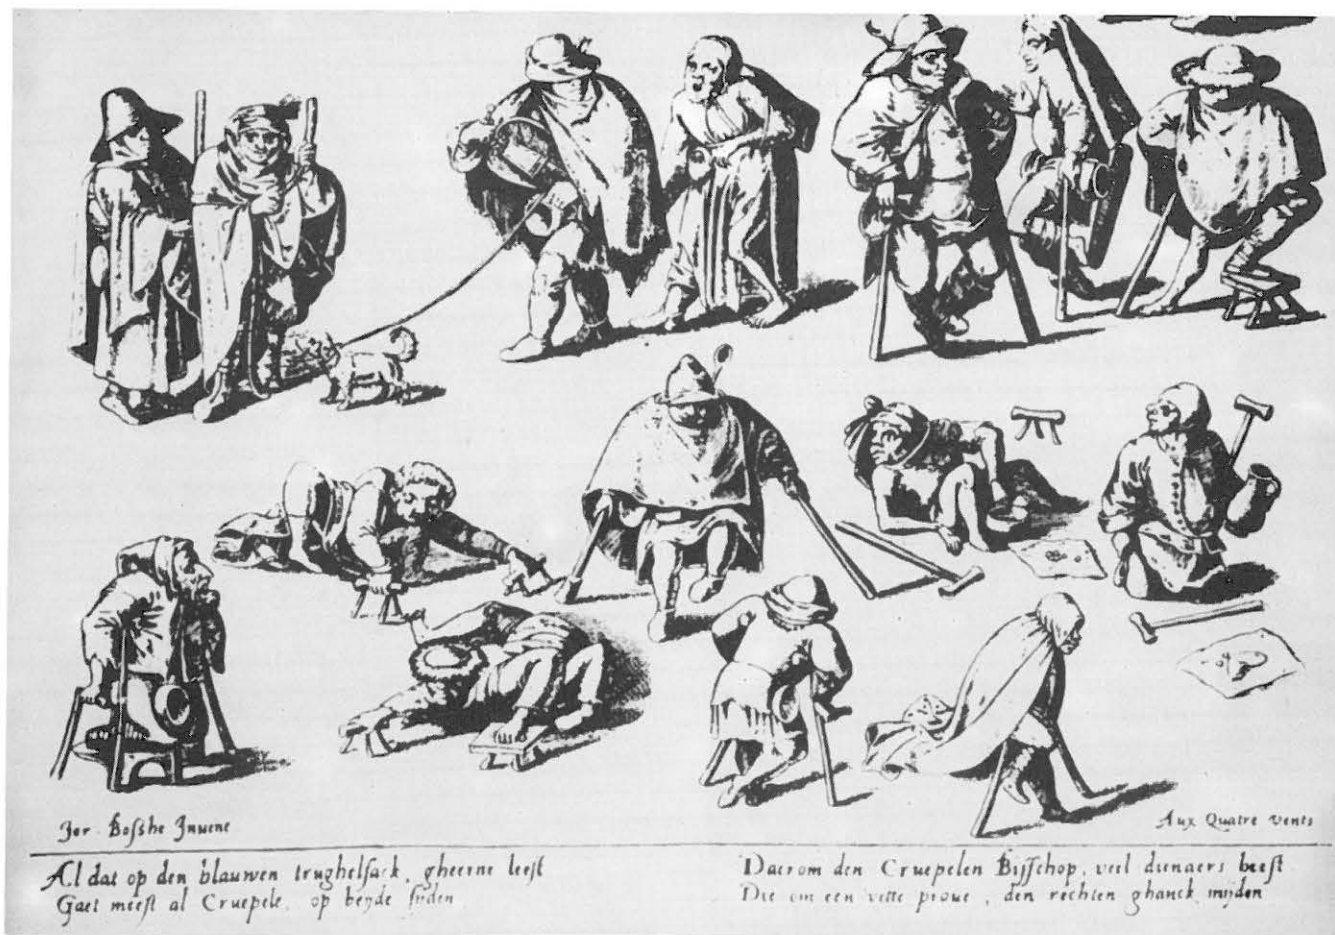 Jer. Bosche Inuene
Aux Quatre vents
Al dat op den blauwen trughelsack, gheerne leeft
Gaet meest al Cruepele, op beyde sijden
Daerom den Cruepelen Bisschop, veel dienaers heeft
Die om een vette proue, den rechten ghanck mijden